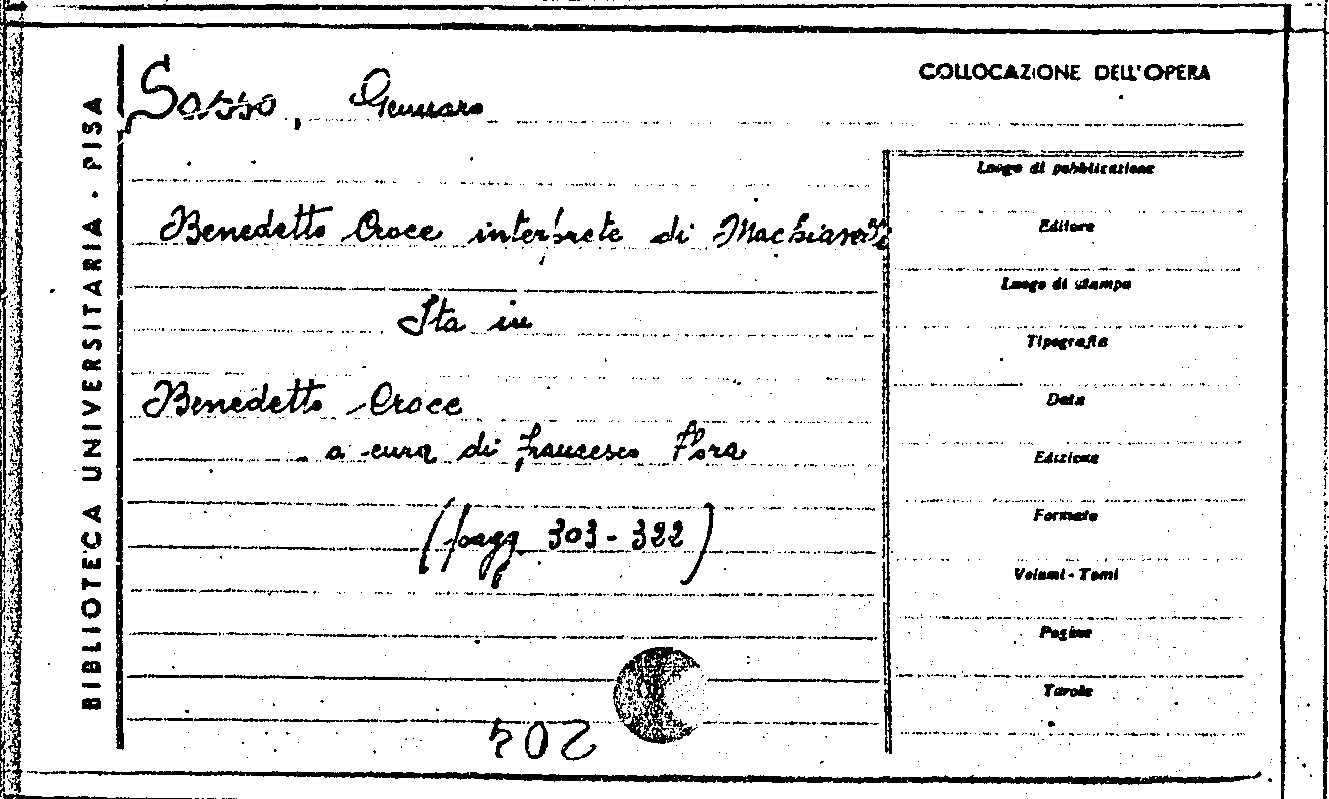 BIBLIOTECA UNIVERSITARIA - PISA
COLLOCAZIONE DELL'OPERA
Sasso, Gennaro
Benedetto Croce interprete di Machiavelli
Sta in
Benedetto Croce
a cura di Francesco Flora
(pagg 303-322)
Luogo di pubblicazione
Editore
Luogo di stampa
Tipografia
Data
Edizione
Formato
Volumi - Tomi
Pagine
Tavole